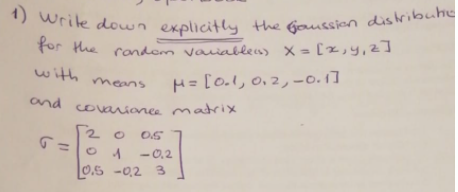 1) Write down explicitly the Gaussian distributio
for the random variables X = [x, y, z]
with means μ = [0.1, 0.2, -0.1]
and covariance matrix
σ = [2 0 0.5
0 1 -0.2
0.5 -0.2 3]